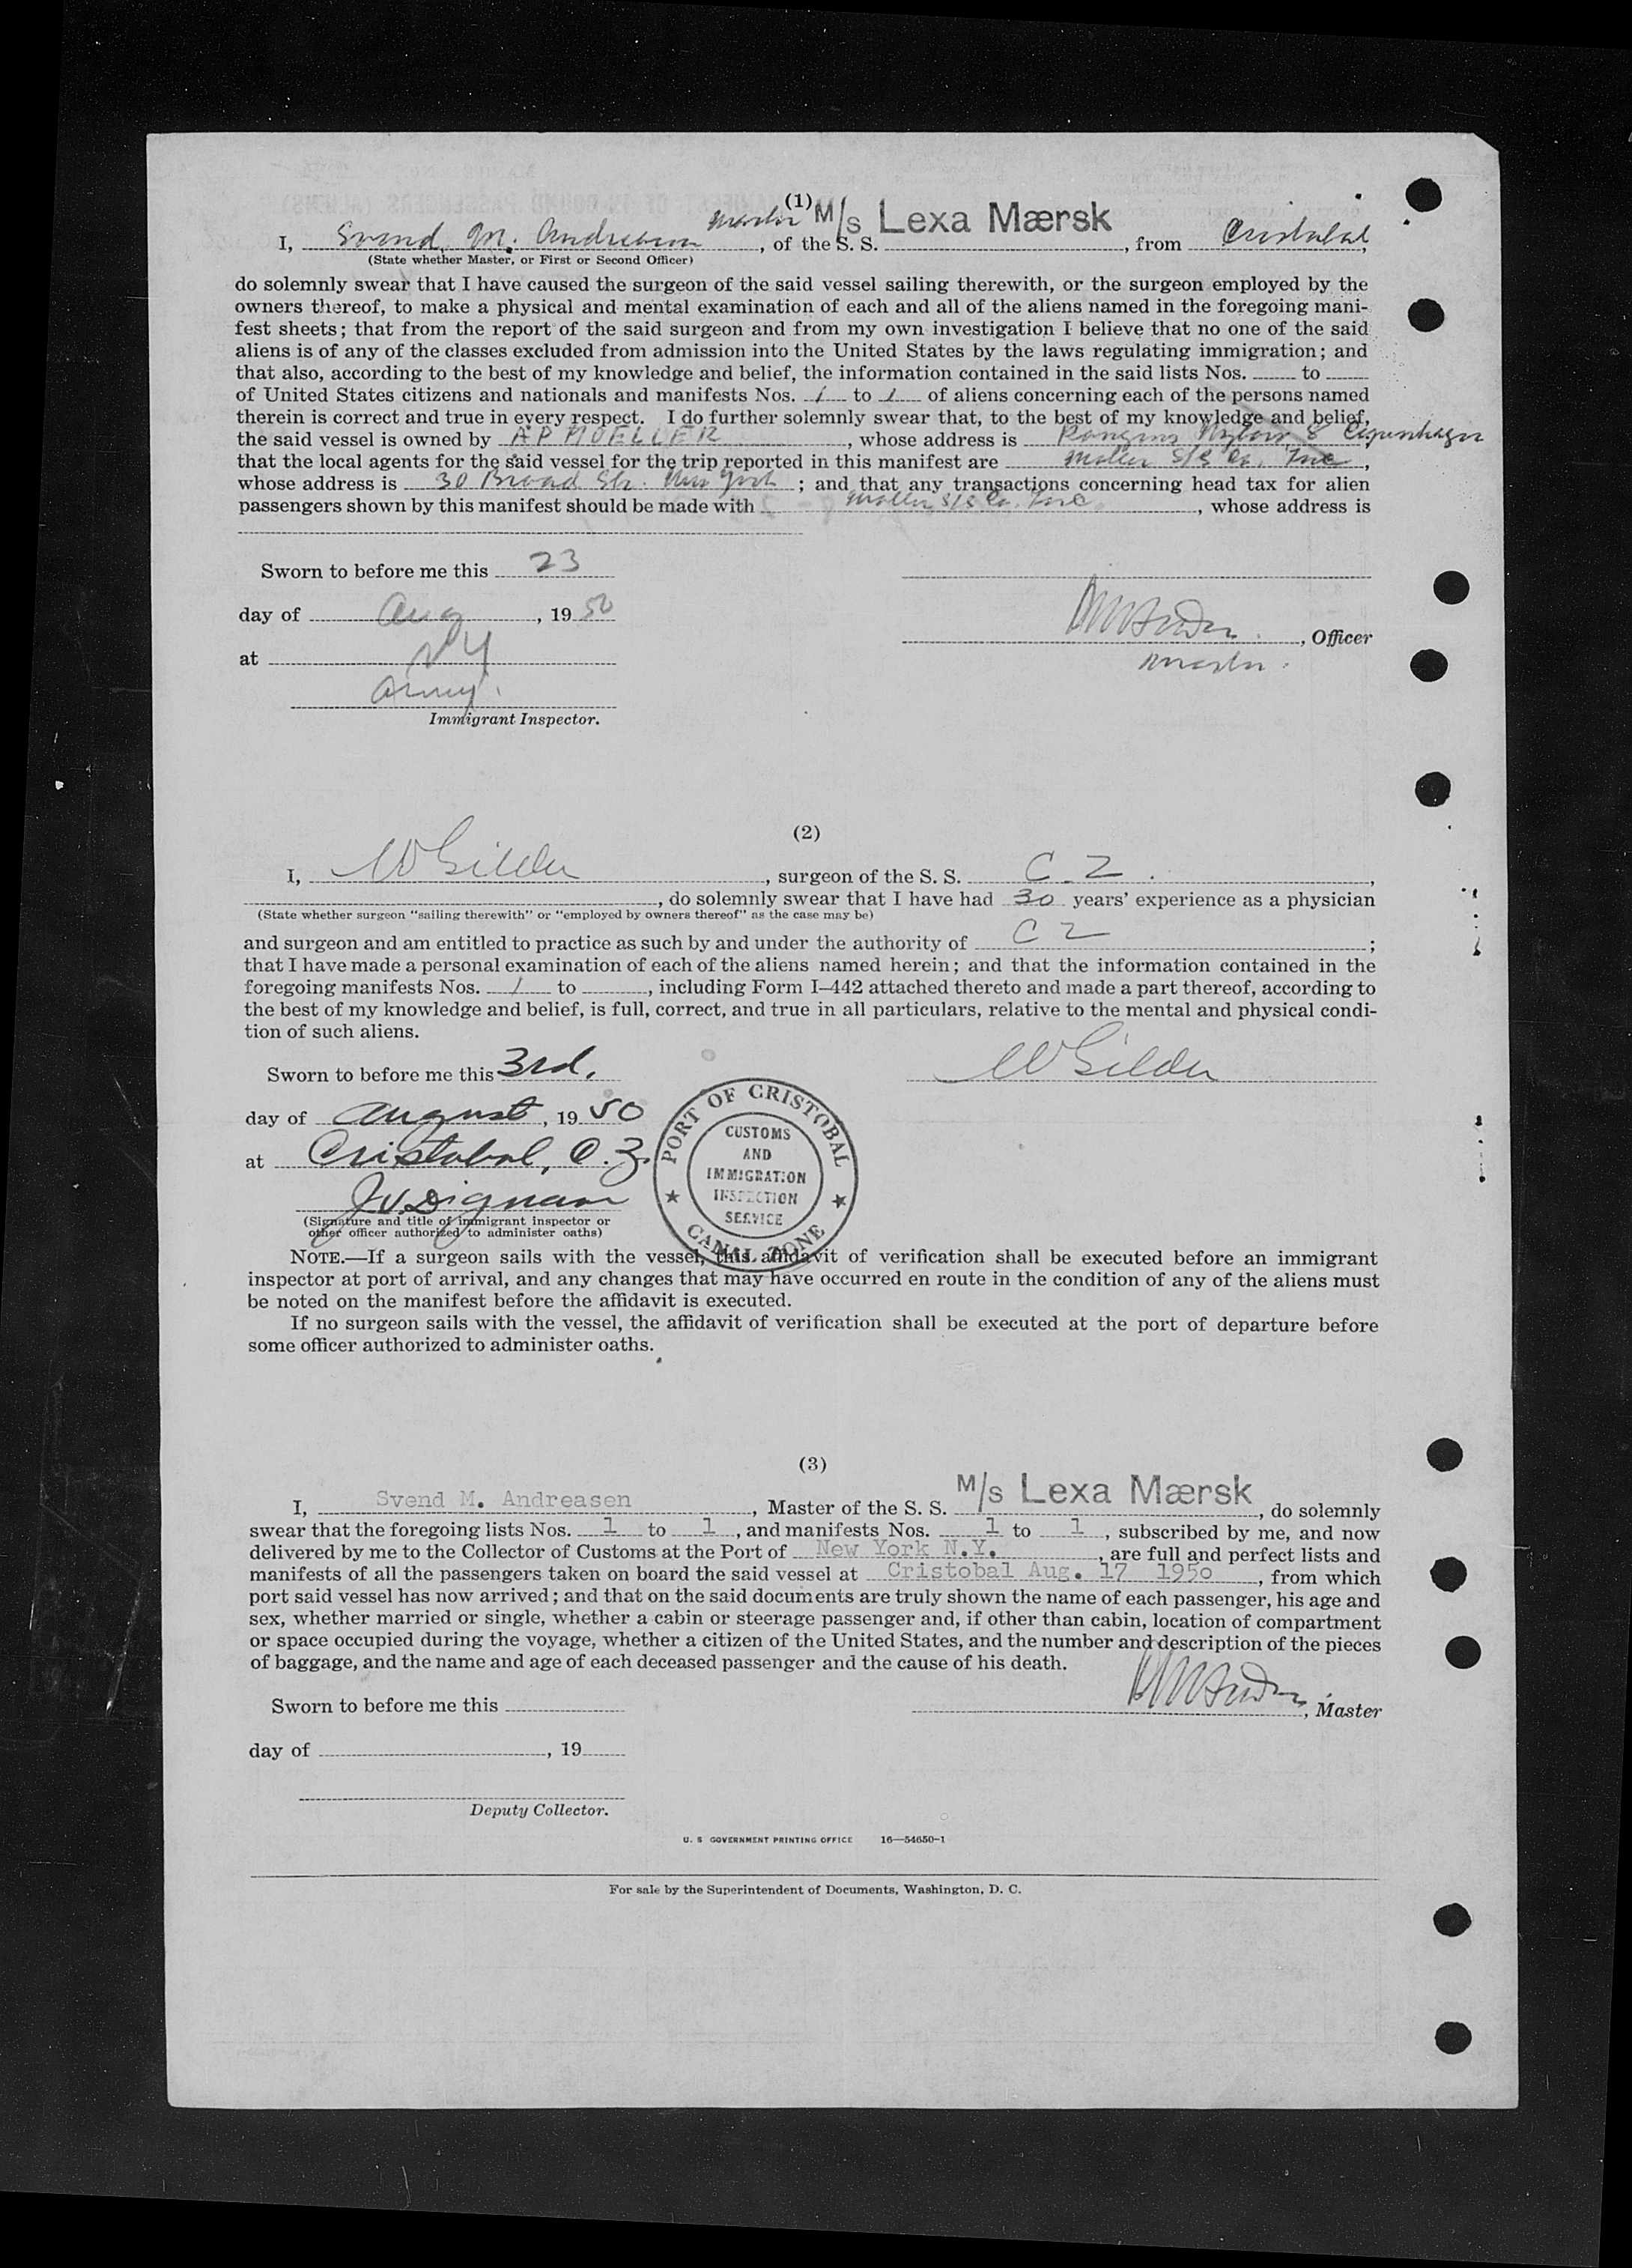 (1)
I, Svend M. Andreasen Master, of the S. S. M/s Lexa Mærsk, from Cristobal,
(State whether Master, or First or Second Officer)
do solemnly swear that I have caused the surgeon of the said vessel sailing therewith, or the surgeon employed by the
owners thereof, to make a physical and mental examination of each and all of the aliens named in the foregoing mani-
fest sheets; that from the report of the said surgeon and from my own investigation I believe that no one of the said
aliens is of any of the classes excluded from admission into the United States by the laws regulating immigration; and
that also, according to the best of my knowledge and belief, the information contained in the said lists Nos. to
of United States citizens and nationals and manifests Nos. 1 to 1 of aliens concerning each of the persons named
therein is correct and true in every respect. I do further solemnly swear that, to the best of my knowledge and belief,
the said vessel is owned by A P MOELLER, whose address is Kongens Nytorv 8 Copenhagen
that the local agents for the said vessel for the trip reported in this manifest are Moller S/S Co. Inc,
whose address is 30 Broad Str. New York; and that any transactions concerning head tax for alien
passengers shown by this manifest should be made with Moller S/S Co. Inc, whose address is
Sworn to before me this 23
day of Aug, 19 50
, Officer
at NY
Master.
Immigrant Inspector.
(2)
I, W Gilder, surgeon of the S. S. C Z.,
, do solemnly swear that I have had 30 years' experience as a physician
(State whether surgeon "sailing therewith" or "employed by owners thereof" as the case may be)
and surgeon and am entitled to practice as such by and under the authority of C Z;
that I have made a personal examination of each of the aliens named herein; and that the information contained in the
foregoing manifests Nos. 1 to , including Form I–442 attached thereto and made a part thereof, according to
the best of my knowledge and belief, is full, correct, and true in all particulars, relative to the mental and physical condi-
tion of such aliens.
Sworn to before me this 3rd.
W Gilder
day of August, 19 50
at Cristobal, C.Z.
J.V. Dignam
(Signature and title of immigrant inspector or
other officer authorized to administer oaths)
PORT OF CRISTOBAL
CUSTOMS
AND
IMMIGRATION
INSPECTION
SERVICE
CANAL ZONE
NOTE.—If a surgeon sails with the vessel, this affidavit of verification shall be executed before an immigrant
inspector at port of arrival, and any changes that may have occurred en route in the condition of any of the aliens must
be noted on the manifest before the affidavit is executed.
If no surgeon sails with the vessel, the affidavit of verification shall be executed at the port of departure before
some officer authorized to administer oaths.
(3)
I, Svend M. Andreasen, Master of the S. S. M/s Lexa Mærsk, do solemnly
swear that the foregoing lists Nos. 1 to 1, and manifests Nos. 1 to 1, subscribed by me, and now
delivered by me to the Collector of Customs at the Port of New York N.Y., are full and perfect lists and
manifests of all the passengers taken on board the said vessel at Cristobal Aug. 17 1950, from which
port said vessel has now arrived; and that on the said documents are truly shown the name of each passenger, his age and
sex, whether married or single, whether a cabin or steerage passenger and, if other than cabin, location of compartment
or space occupied during the voyage, whether a citizen of the United States, and the number and description of the pieces
of baggage, and the name and age of each deceased passenger and the cause of his death.
Sworn to before me this
, Master
day of , 19
Deputy Collector.
U. S GOVERNMENT PRINTING OFFICE 16—54650-1
For sale by the Superintendent of Documents, Washington, D. C.